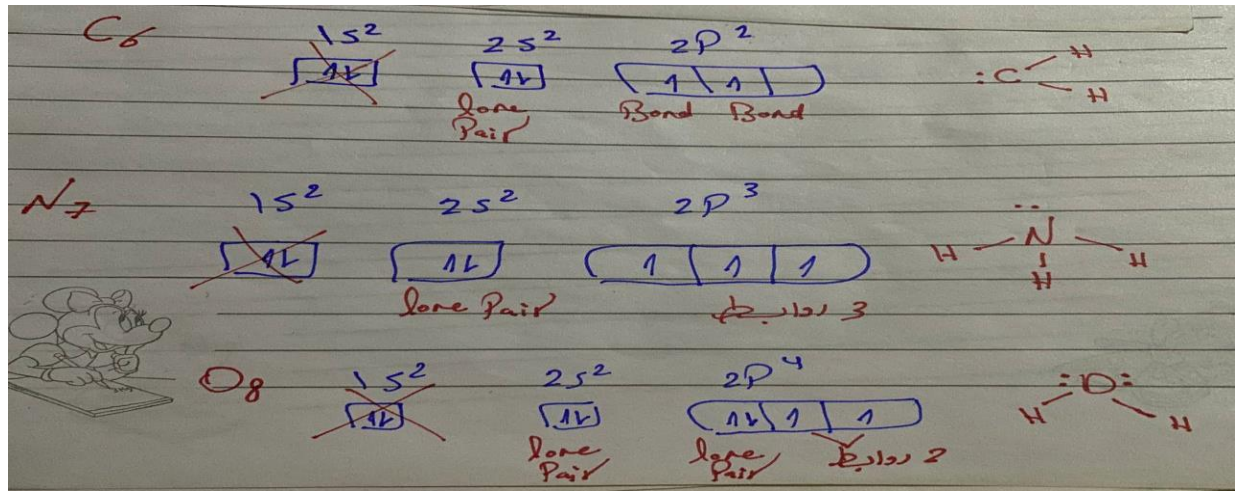 C6 1s² 2s² 2P²
1↓ 1↓ 1 1
lone Pair Bond Bond
:C H H
N7 1s² 2s² 2P³
1↓ 1↓ 1 1 1
lone Pair 3 روابط
H N H
H
O8 1s² 2s² 2P⁴
1↓ 1↓ 1↓ 1 1
lone Pair lone Pair 2 روابط
:O:
H H